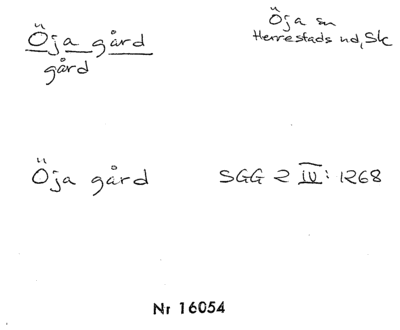 Öja gård
gård
Öja sn
Herrestads hd, Sk
Öja gård
SGG 2 IV: 1268
Nr 16054